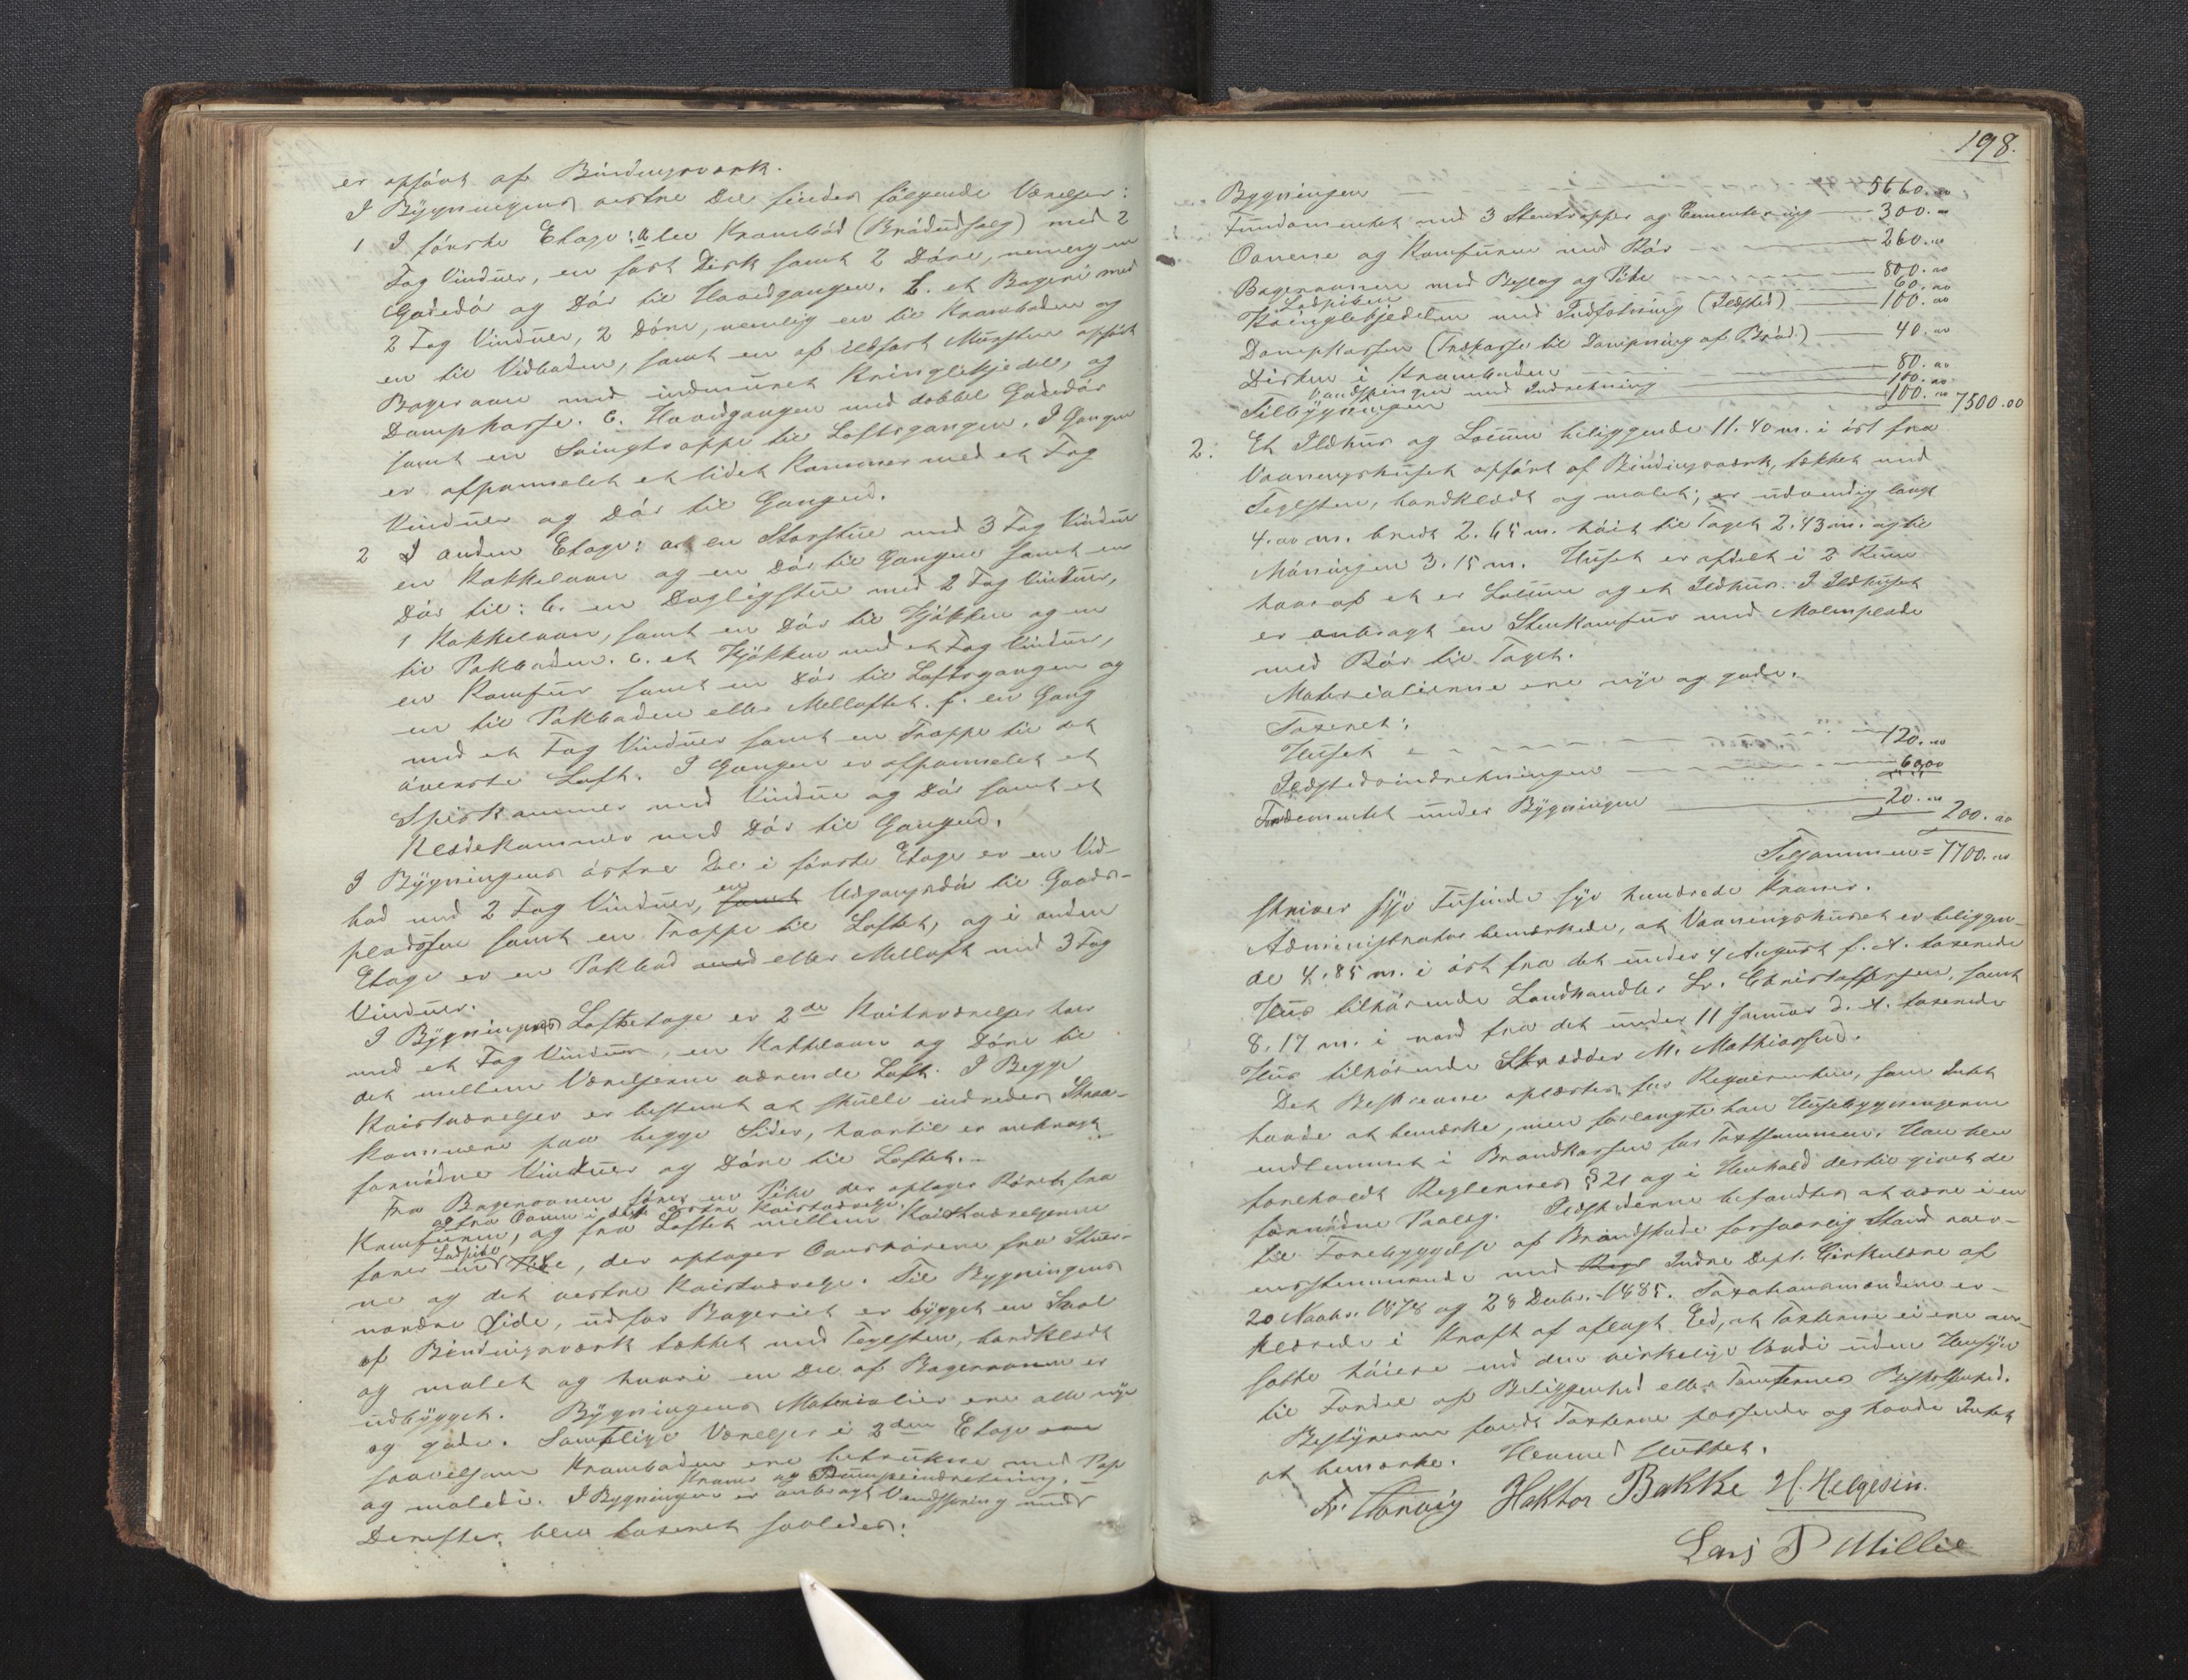 er opført af Bindingsværk.
I Bygningens vestre Del findes følgende Værelser:
1 I første Etage: a. en Krambod (Brødudsalg) med 2
Fag Vinduer, en fast Disk samt 2 Døre, nemlig en
Gadedør og Dør til Hovedgangen. b. et Bageri med
2 Fag Vinduer, 2 Døre, nemlig en til Kramboden og
en til Vedboden, samt en af ildfast Mursten opført
Bagerovn med indmuret Kringlekjedel, og
Dampkasse. c. Hovedgangen med dobbel Gadedør
samt en Svingtrappe til Loftsgangen. I Gangen
er afpannelet et lidet Kammer med et Fag
Vinduer og Dør til Gangen.
2 I anden Etage: a. en Storstue med 3 Fag Vinduer
en Kakkelovn og en Dør til Gangen samt en
Dør til: b. en Dagligstue med 2 Fag Vinduer,
1 Kakkelovn, samt en Dør til Kjøkken og en
til Pakboden. c. et Kjøkken med et Fag Vinduer,
en Komfur samt en Dør til Loftsgangen og
en til Pakboden eller Melloftet. f. en Gang
med et Fag Vinduer samt en Trappe til det
øverste Loft. I Gangen er afpannelet et
Spiskammer med Vindue og Dør samt et
Klædekammer med Dør til Gangen.
I Bygningens østre Del i første Etage er en Ved-
bod med 2 Fag Vinduer, samt en Udgangsdør til Gaards-
pladsen samt en Trappe til Loftet, og i anden
Etage er en Pakbod med eller Melloft med 3 Fag
Vinduer.
I Bygningens Loftsetage er 2de Kvistværelser hver
med et Fag Vinduer, en Kakkelovn og Døre til
det mellem Værelserne værende Loft. I Begge
Kvistværelser er bestemt at skulle indredes Skraa-
kammere paa begge Sider, hvortil er anbragt
fornødne Vinduer og Døre til Loftet.-
Fra Bagerovnen fører en Pibe der optager Røret fra
og fra Ovnen i det østre Kvistværelse.
Komfuren, og fra Loftet mellem Kvistværelserne
Ladpibe
fører en Pibe, der optager Ovnsrørene fra Stuer-
ne og det vestre Kvistværelse. Til Bygningens
nordre Side, udfor Bageriet er bygget en Sval
af Bindingsværk tækket med Teglsten, bordklædt
og malet og hvori en Del af Bagerovnen er
udbygget. Bygningens Materialier ere alle nye
og gode. Samtlige Værelser i 2den Etage ere
saavelsom Kramboden ere betrukne med Pap
og malede. I Bygningen er anbragt Vandspring med
Kraner og Pumpeindretning.
Derefter blev taxeret saaledes:
198.
Bygningen 5660.00
Fundamentet med 3 Stentrapper og Cementering 300.-
Ovnene og Komfuren med Rør 260.00
Bagerovnen med Beslag og Pibe 800.00
Ladpiben 60.00
Kringlekjedelen med Indfatning (Ildsted) 100.00
Dampkassen (Trækasse til Dampning af Brød.) 40.00
Disken i Kramboden 80.00
Vandspringen med Indretning 100.00
Tilbygningen 100.00 7500.00
2: Et Ildhus og Locum beliggende 11.40 m. i øst fra
Vaaningshuset opført af Bindingsværk, tækket med
Teglsten, bordklædt og malet; er udvendig langt
4.00 m. bredt 2.65 m. høit til Taget 2.43 m. og til
Møningen 3.15 m. Huset er afdelt i 2 Rum
hvoraf et er Locum og et Ildhus. I Ildhuset
er anbragt en Stenkomfur med Malmplade
med Rør til Taget.
Materialierne ere nye og gode.
Taxeret:
Huset 120.00
Ildstedsindretningen 60.00
Fundamentet under Bygningen 20.00 200.00
Tilsammen = 7700.00
skriver syv Tusinde syv hundrede Kroner.
Administrator bemærkede, at Vaaningshuset er beliggen-
de 4.85 m. i øst fra det under 4 August f. A. taxerede
Hus tilhørende Landhandler Sr. Christoffersen, samt
8.17 m. i nord fra det under 11 Januar d. A. taxerede
Hus tilhørende Skrædder M. Mathiassen.
Det Beskrevne oplæstes for Reqvirenten, som Intet
havde at bemærke, men forlangte han Husebygningerne
indlemmet i Brandkassen for Taxtsummen. Han blev
foreholdt Reglernes § 21 og i Henhold dertil givet de
fornødne Paalæg. Ildstederne befandtes at være i en
til Forebyggelse af Brandskade forsvarlig Stand over-
ensstemmende med Regl Indre Dept. Cirkulære af
20 Novbr. 1878 og 28 Decbr. 1885. Taxationsmændene er-
klærede i Kraft af aflagt Eed, at Taxterne ei ere an-
satte høiere end den virkelige Værdi uden Hensyn
til Fordel af Beliggenhed eller Tomternes Beskaffenhed.
Bestyreren fandt Taxterne passende og havde Intet
at bemærke. Hermed sluttet.
Hektor Bakke H. Helgesen.
Lars P Millie